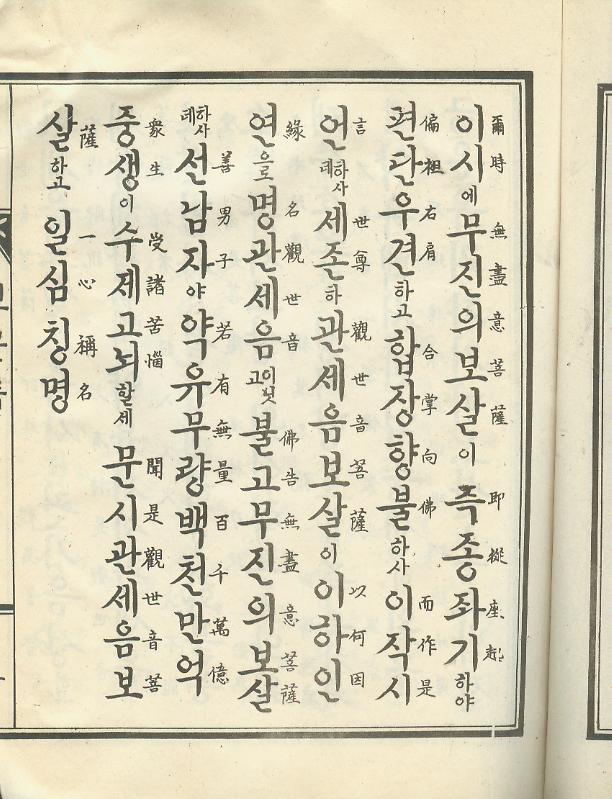 爾時 無盡意菩薩 即從座起
이시에무진의보살이즉종좌기하야
偏祖右肩 合掌向佛 而作是
편단우견하고합장향불하사이작시
言 世尊 觀世音菩薩 以何因
언하사데세존하관세음보살이이하인
緣 名觀世音 佛告無盡意菩薩
연으로명관세음이닛고불고무진의보살
善男子 若有無量百千萬億
하사데선남자야약유무량백천만억
衆生 受諸苦惱 聞是觀世音菩
중생이수제고뇌할세문시관세음보
薩 一心稱名
살하고일심칭명